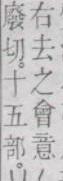 右去之會意
廢切。十五部。